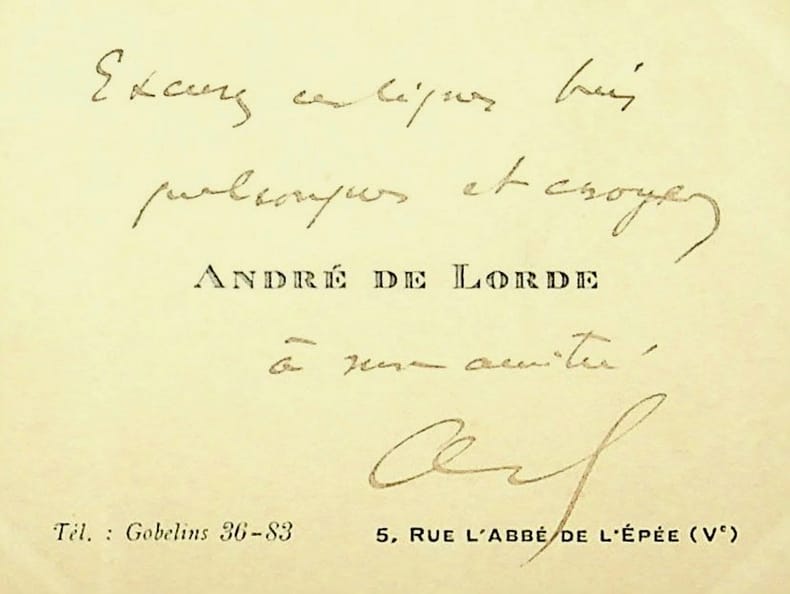 Excusez ces lignes très
et croyez
ANDRÉ DE LORDE
à mon amitié
Tél. : Gobelins 36-83
5, RUE L'ABBÉ DE L'ÉPÉE (Vᵉ)